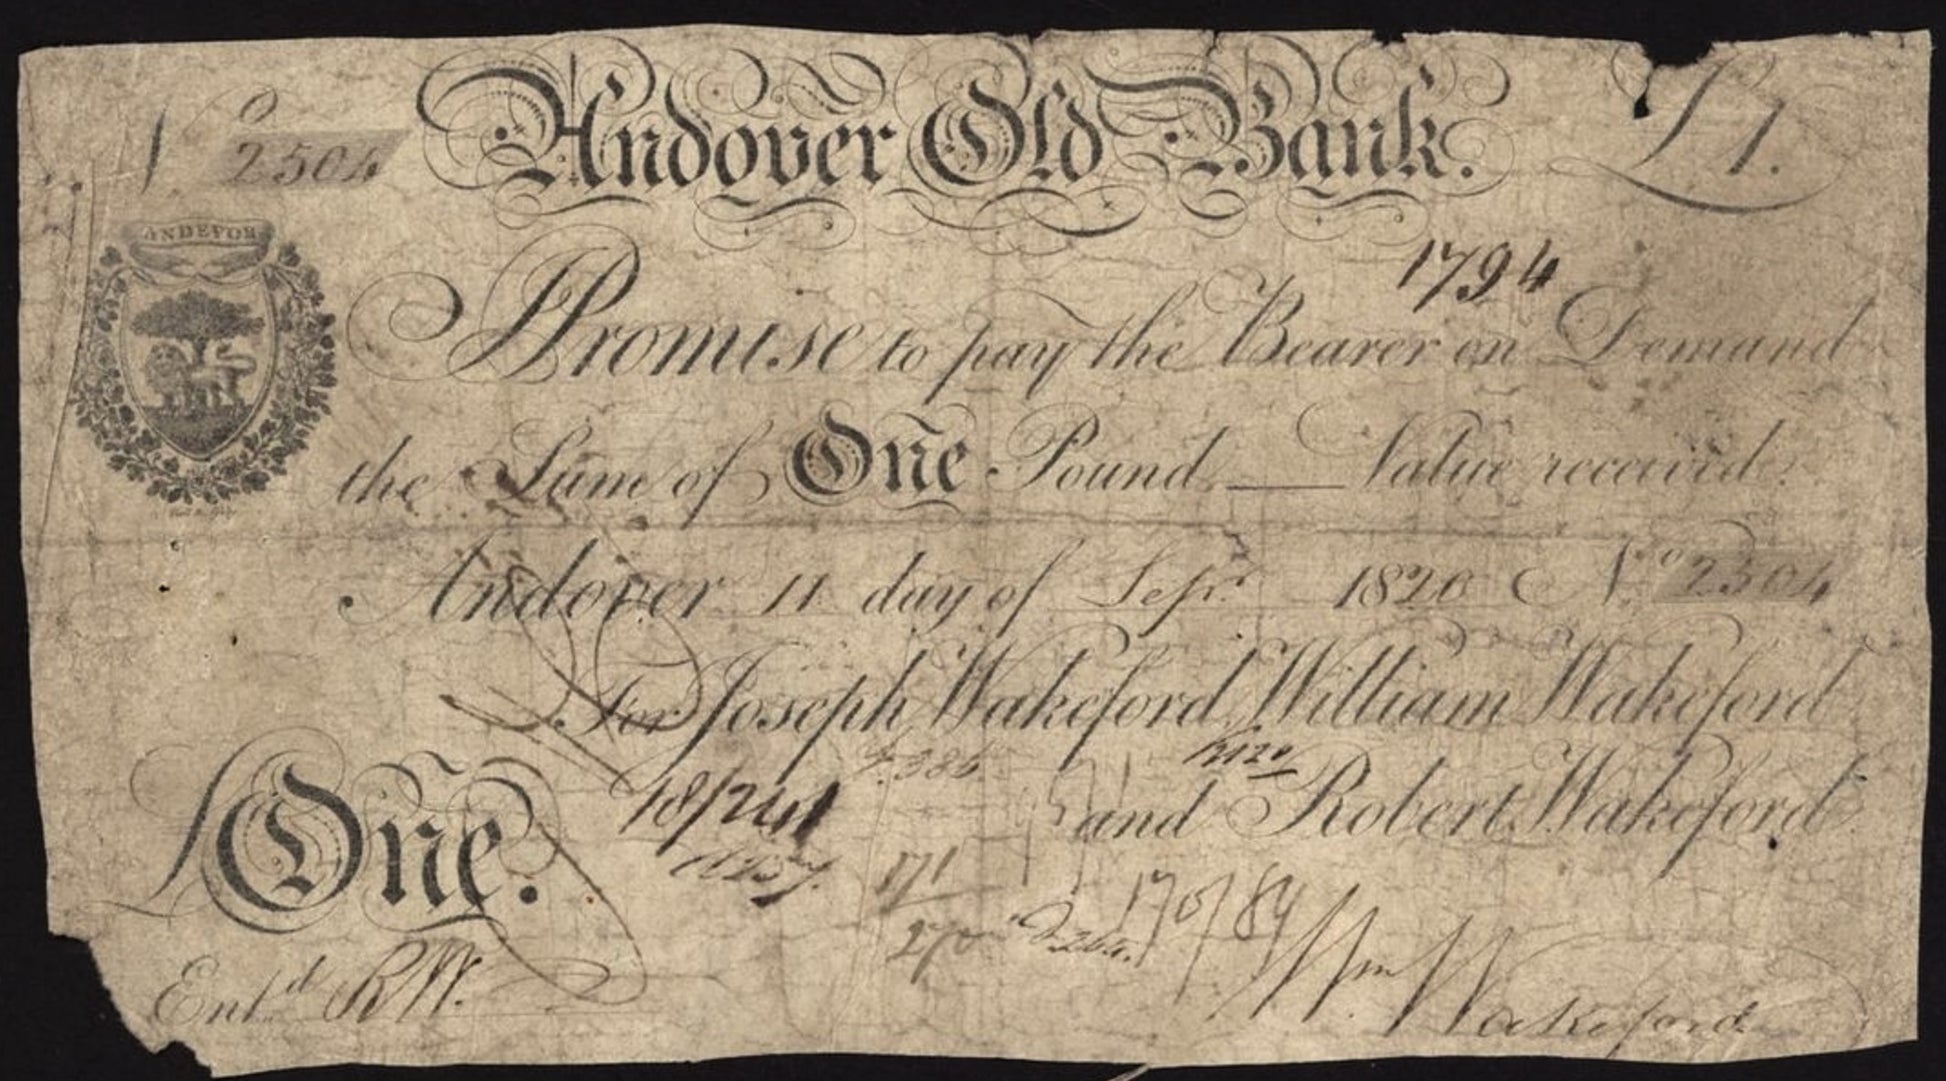 No 2504 Andover Old Bank. £1.
ANDEVOR
1794
I Promise to pay the Bearer on Demand
the Sum of One Pound Value received.
Andover 11 day of Sepr. 1820 No 2504
For Joseph Wakeford, William Wakeford
and Robert Wakeford
£One.
18/241
171
270
170/84
Wm Wakeford
Entd RW.